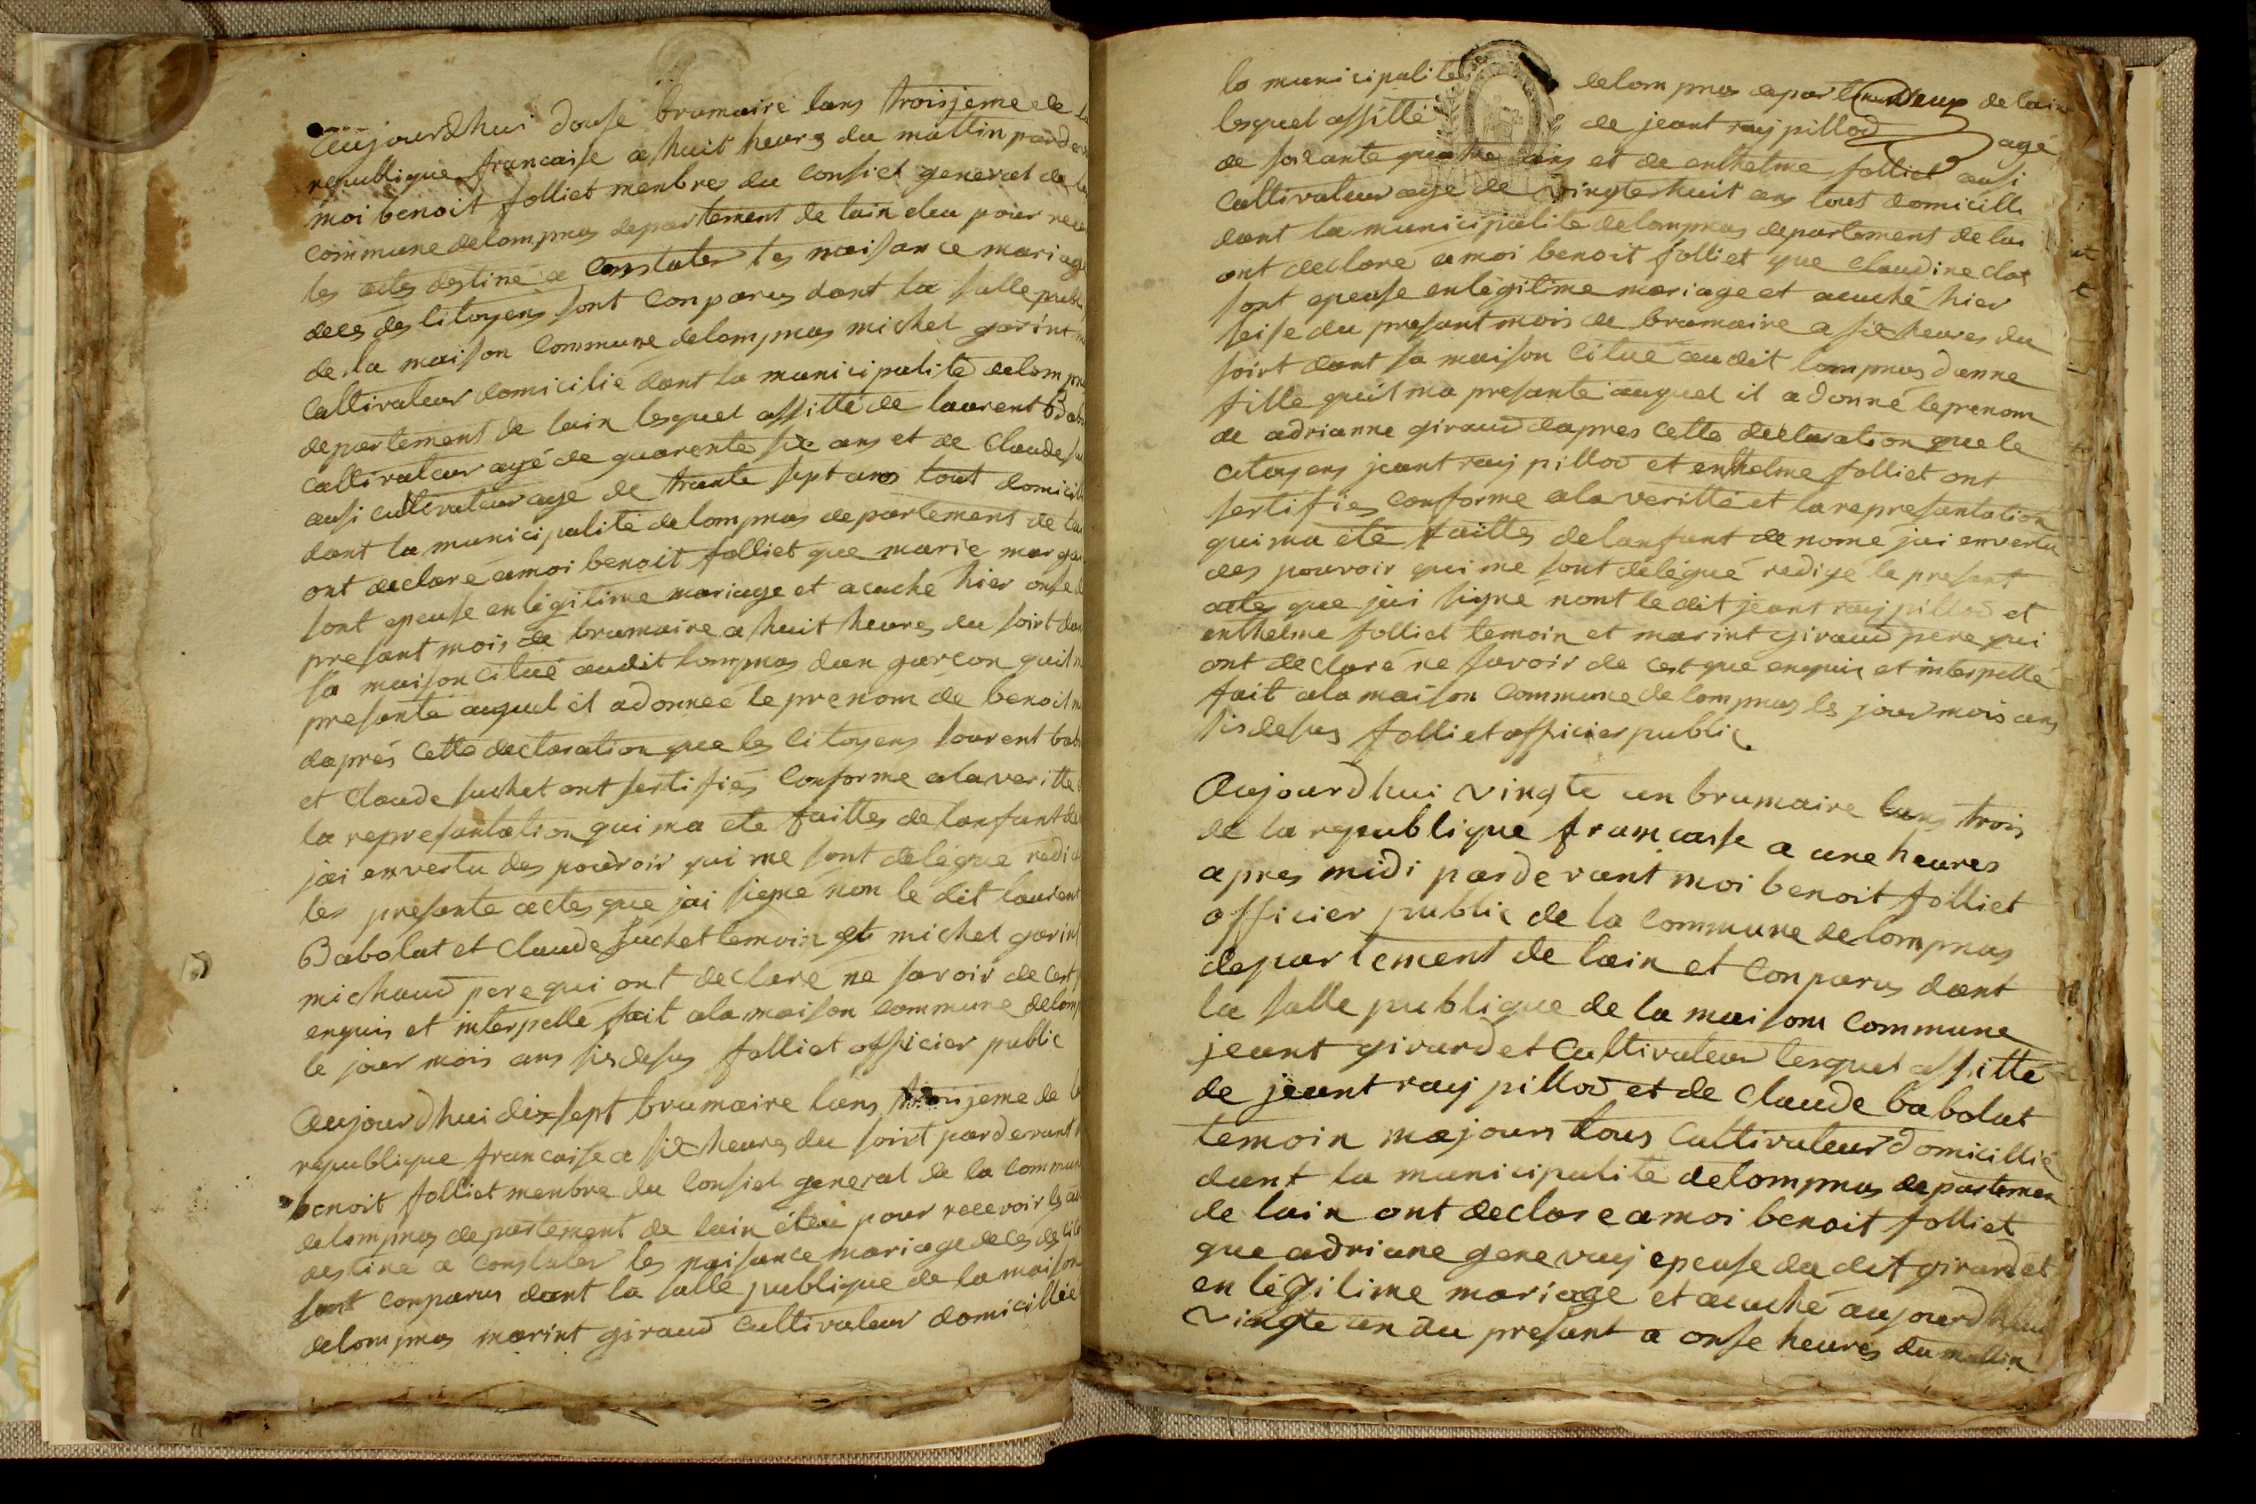 aujourdhui douse brumaire lans troisjeme de la
republique francaise a huit heurs du mattin pard
moi benoit folliet menbres du consiel general de la
commune delompnas departement de lain eleu pour rece
les actes destiné a constater les naisance mariage
deces des citoyens sont conparus dant la salle publi
de la maison commune delompnas michel garint
cultivateur domicilié dant la municipalité delompn
departement de lain lesquel assitté de laurent Babo
cultivateur agé de quarente six ans et de claude su
ausi cultivateur age de trante sept ans tout domicill
dant la municipalité delompnas departement de lai
ont declaré amoi benoit folliet que marie mar
sont epeuse enlégitime mariage et acuché hier onse
presant mois de brumaire a huit heures du soirt dan
sa maison citué audit lompnas dun garcon quil m
presanté auquel il adonneé le prenom de benoit
daprés cette declaration que les citoyens lourent bab
et claude suchet ont sertifiés conforme alaveritte
la representation quima ete faittes de lanfant de
jai envertu des pouvoir qui me sont délégué redi
les presante actes que jai signé non le dit laurent
Babolat et claude suchet temoin et michel garint
michaud pere qui ont declaré ne savoir de cest
enquis et interpellé fait ala maison commune delomp
le jour mois ans sisdesus folliet officier public
Aujourdhui dixsept brumaire lans troisjeme de la
republique francaise a six heures du soirt pardevant
benoit folliet menbre du consiel general de la commun
delompnas departement de lain éleu pour recevoir les ac
destiné a constater les naisance mariage deces des cit
sont conparus dant la salle publique de la maison
delompnas marint giraud cultivateur domicillié
la municipalite delompnas departement de lain
deux
lesquel assitté de jeant ray pillod agé
de soixante quatre ans et de enthelme folliet ausi
cultivateur age de vingte huit ans tout domicilli
dant la municipalite delompnas departement de lai
ont declare amoi benoit folliet que claudine
sont epeuse enlégitime mariage et acuché hier
seise du presant mois de brumaire a six heures du
soirt dant sa maison citué audit lompnas danne
fille quil ma presanté auquel il adonné leprenom
de adrianne giraud dapres cette declaration que le
citoyens jeant ray pillod et enthelme folliet ont
sertifies conforme ala veritté et la representation
quima été faittes delanfant de nomé jai envertu
des pouvoir qui me sont délégué redigé le presant
actes que jai signé nont le dit jeant ray pillod et
enthelme folliet temoin et marint giraud pere qui
ont declaré ne savoir de cest que enquis et interpellé
fait ala maison commune de lompnas les jour mois ans
sisdesus folliet officier public
Aujourdhui vingte un brumaire lans trois
de la republique francaisse a une heures
apres midi pardevant moi benoit folliet
officier public de la commune delompnas
departement de lain et conparus dant
la salle publique de la maisont commune
jeant girardet cultivateur lesquel assitté
de jeant ray pillod et de claude babolat
temoin majours tous cultivateur domicillié
dant la municipalite delompnas departemen
de lain ont declare amoi benoit folliet
que adriane genevay epeuse du dit girardet
en légitime mariage et acuché aujourdhui
vingte un du presant a onse heures du mattin